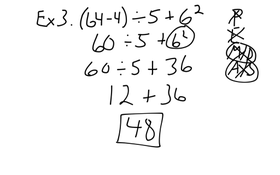 Ex 3. (64-4) ÷ 5 + 6²
60 ÷ 5 + 6²
60 ÷ 5 + 36
12 + 36
48
P
E
M/D
A/S